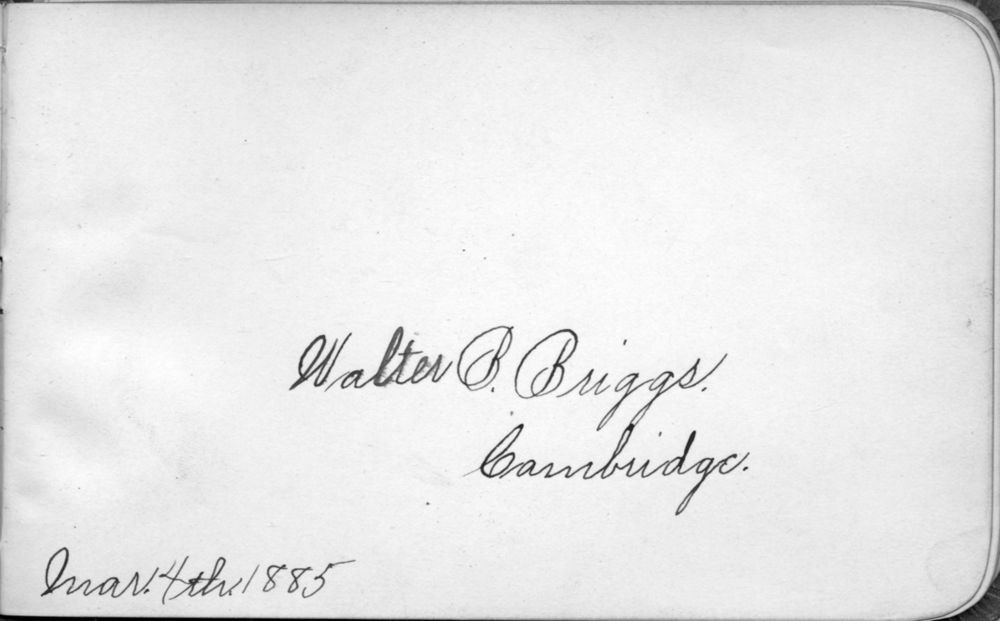 Walter B. Briggs.
Cambridge.
Mar. 4th. 1885